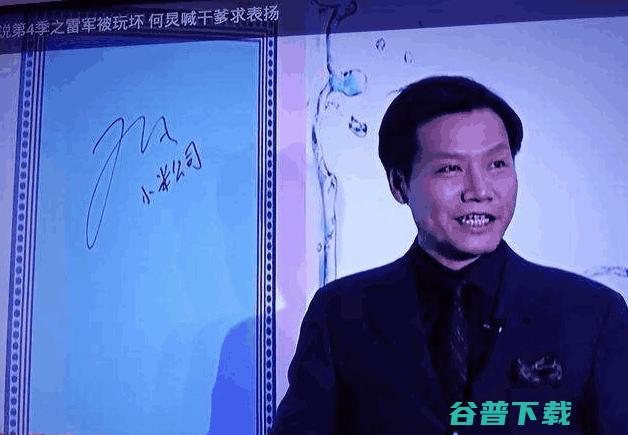 说第4季之雷军被玩坏 何炅喊干爹求表扬
小米公司
谷普下载